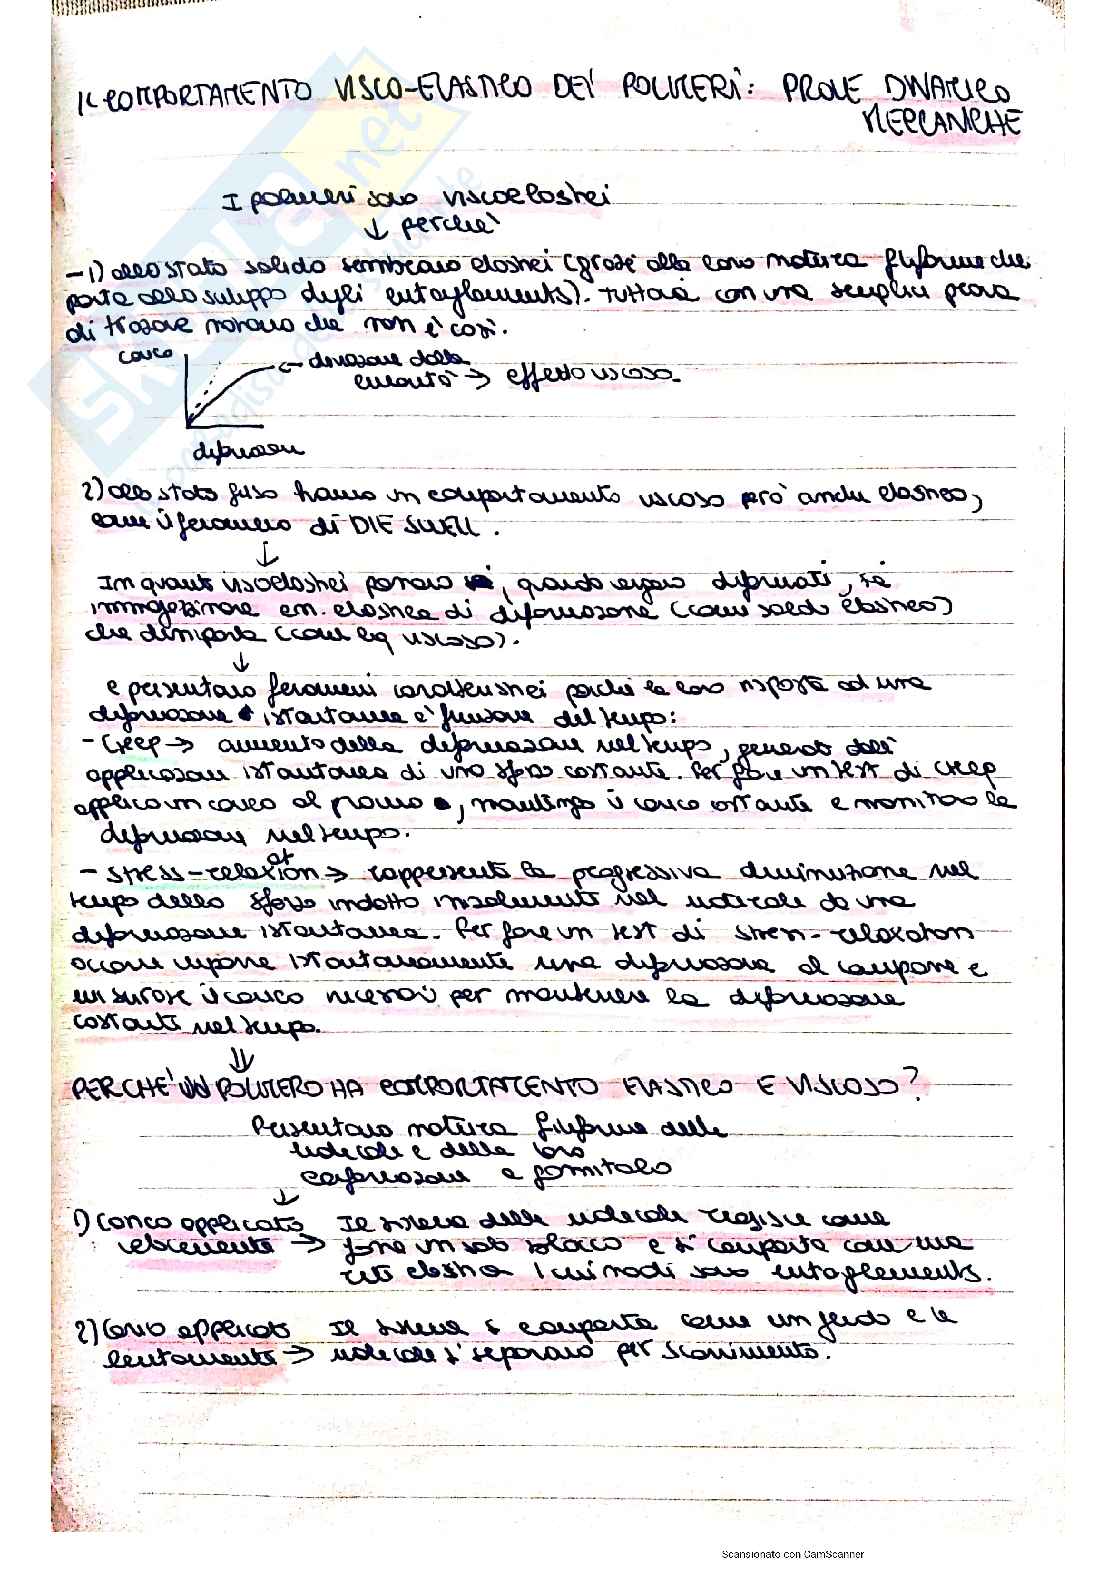 IL COMPORTAMENTO VISCO-ELASTICO DEI POLIMERI: PROVE DINAMICO
MECCANICHE
I polimeri sono viscoelastici
↓ perché
-1) allo stato solido sembrano elastici (grazie alla loro natura filiforme che
porta allo sviluppo degli entanglements). Tuttavia con una semplice prova
di trazione notiamo che non è così.
carico
← deviazione dalla
linearità → effetto viscoso
deformazione
2) allo stato fuso hanno un comportamento viscoso però anche elastico,
come il fenomeno di DIE SWELL.
↓
In quanto viscoelastici possono, quando vengono deformati, sia
immagazzinare en. elastica di deformazione (come solido elastico)
che dissiparla (come liq viscoso).
↓
e presentano fenomeni caratteristici perché la loro risposta ad una
deformazione istantanea è funzione del tempo:
- Creep → aumento della deformazione nel tempo, generato dall'
applicazione istantanea di uno sforzo costante. Per fare un test di creep
applico un carico al provino, mantengo il carico costante e monitoro la
deformazione nel tempo.
- stress-relaxation → rappresenta la progressiva diminuzione nel
tempo dello sforzo indotto inizialmente nel materiale da una
deformazione istantanea. Per fare un test di stress-relaxation
occorre imporre istantaneamente una deformazione al campione e
misurare il carico necessario per mantenere la deformazione
costante nel tempo.
⇓
PERCHÉ UN POLIMERO HA COMPORTAMENTO ELASTICO E VISCOSO?
Presentano natura filiforme delle
molecole e della loro
conformazione a gomitolo
↓
1) Carico applicato Il sistema delle molecole reagisce come
velocemente → fosse un solo blocco e si comporta come una
rete elastica i cui nodi sono entanglements.
2) Carico applicato Il sistema si comporta come un fluido e le
lentamente → molecole si separano per scorrimento.
Scansionato con CamScanner